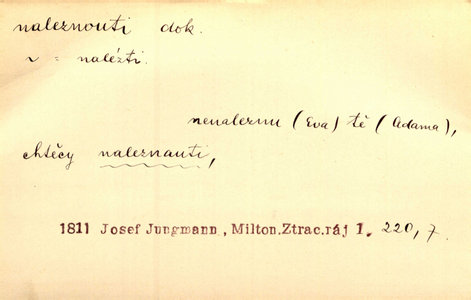 naleznouti dok.
v = nalézti.
nenaleznu (Eva) tě (Adama),
chtěcy naleznauti,
1811 Josef Jungmann, Milton.Ztrac.ráj 1. 220, 7.